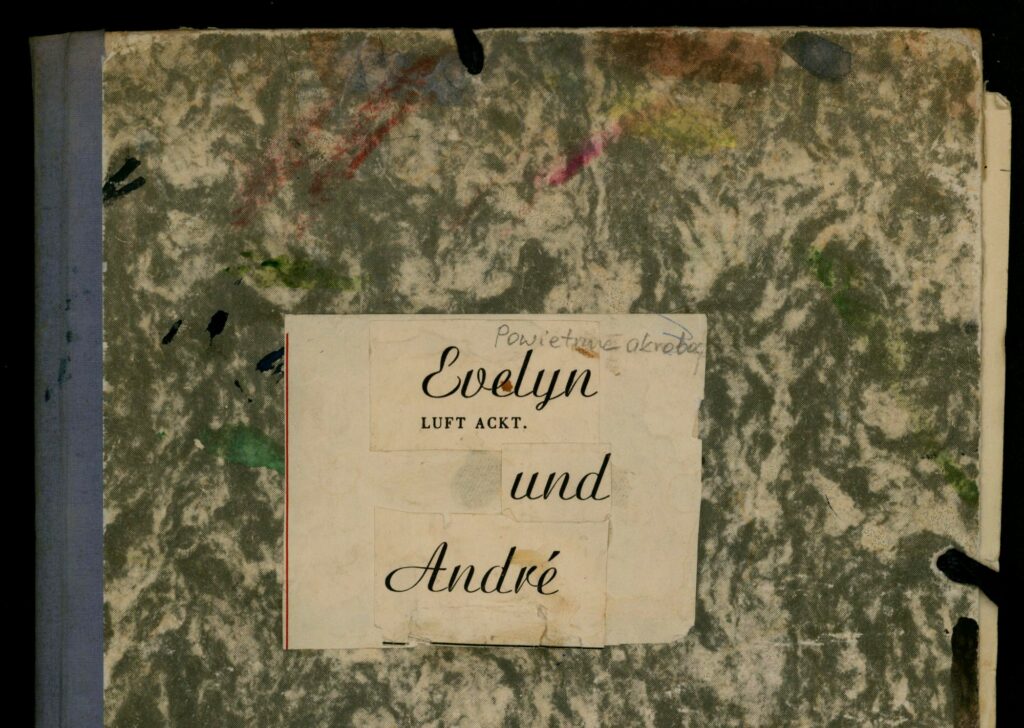 Powietrzne akrobac
Evelyn
LUFT ACKT.
und
André